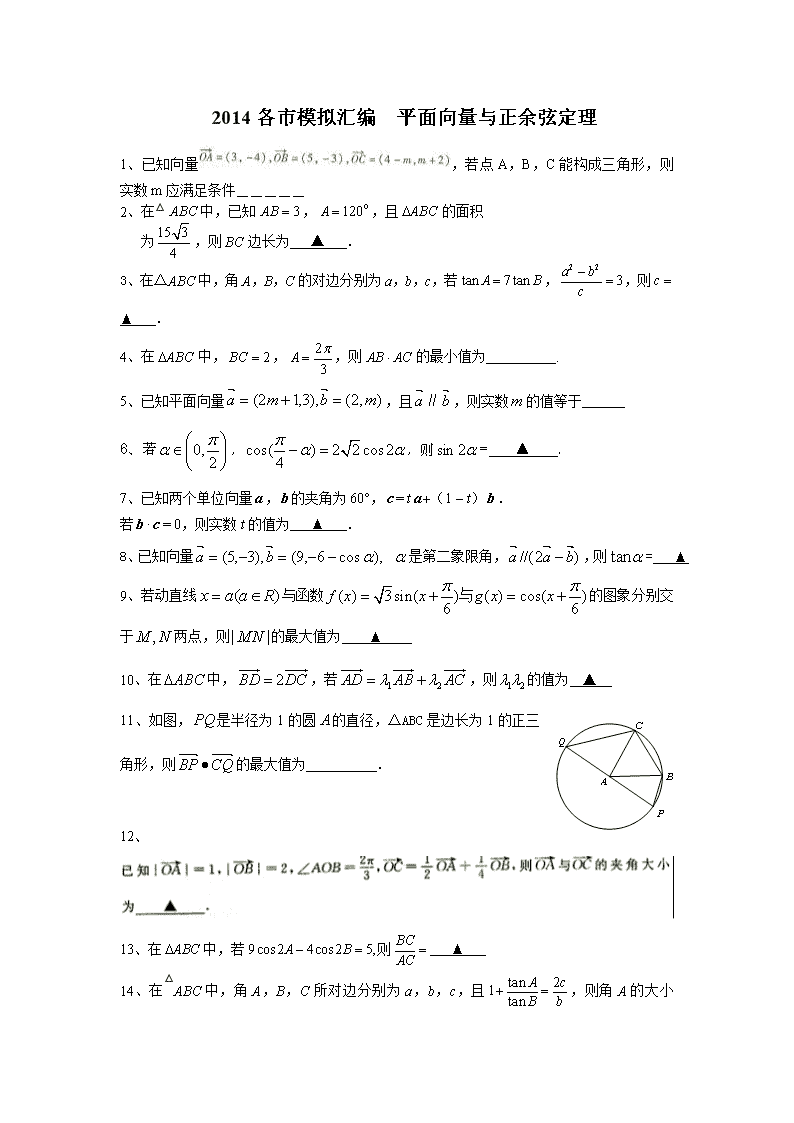 2014 各市模拟汇编　平面向量与正余弦定理
1、已知向量$\overrightarrow{OA}=(3,-4),\overrightarrow{OB}=(5,-3),\overrightarrow{OC}=(4-m,m+2)$，若点 A，B，C 能构成三角形，则
实数 m 应满足条件＿＿＿＿＿
2、在△ABC 中，已知 $AB=3$，$A=120°$，且 $\Delta ABC$ 的面积
为$\frac{15\sqrt{3}}{4}$，则 BC 边长为 ▲ ．
3、在△ABC 中，角 A，B，C 的对边分别为 a，b，c，若 $\tan A=7\tan B$，$\frac{a^2-b^2}{c}=3$，则 $c=$
▲ ．
4、在 $\Delta ABC$ 中，$BC=2$，$A=\frac{2\pi}{3}$，则 $AB\cdot AC$ 的最小值为__________.
5、已知平面向量$\vec{a}=(2m+1,3),\vec{b}=(2,m)$，且$\vec{a}∥\vec{b}$，则实数 m 的值等于______
6、若$\alpha\in\left(0,\frac{\pi}{2}\right)$，$\cos(\frac{\pi}{4}-\alpha)=2\sqrt{2}\cos2\alpha$，则 $\sin2\alpha=$ ▲ .
7、已知两个单位向量 a，b 的夹角为 60°，c = t a+（1 – t）b．
若 b · c = 0，则实数 t 的值为 ▲ ．
8、已知向量$\vec{a}=(5,-3),\vec{b}=(9,-6-\cos\alpha)$, $\alpha$是第二象限角，$\vec{a}//(2\vec{a}-\vec{b})$，则$\tan\alpha=$ ▲
9、若动直线$x=a(a\in R)$与函数$f(x)=\sqrt{3}\sin(x+\frac{\pi}{6})$与$g(x)=\cos(x+\frac{\pi}{6})$的图象分别交
于$M,N$两点，则$|MN|$的最大值为 ▲
10、在$\Delta ABC$中，$\overrightarrow{BD}=2\overrightarrow{DC}$，若$\overrightarrow{AD}=\lambda_1\overrightarrow{AB}+\lambda_2\overrightarrow{AC}$，则$\lambda_1\lambda_2$的值为 ▲
11、如图，PQ是半径为 1 的圆 A的直径，△ABC 是边长为 1 的正三
角形，则$\overrightarrow{BP}\bullet\overrightarrow{CQ}$的最大值为__________．
C
Q
A
B
P
12、
已知$|\overrightarrow{OA}|=1,|\overrightarrow{OB}|=2,\angle AOB=\frac{2\pi}{3},\overrightarrow{OC}=\frac{1}{2}\overrightarrow{OA}+\frac{1}{4}\overrightarrow{OB}$,则$\overrightarrow{OA}$与$\overrightarrow{OC}$的夹角大小
为 ▲ .
13、在 $\Delta ABC$ 中，若 $9\cos2A-4\cos2B=5$,则$\frac{BC}{AC}=$ ▲
14、在△ABC 中，角 A，B，C 所对边分别为 a，b，c，且 $1+\frac{\tan A}{\tan B}=\frac{2c}{b}$，则角 A 的大小